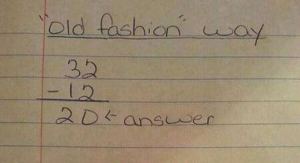 "old fashion" way
32
-12
20 ← answer